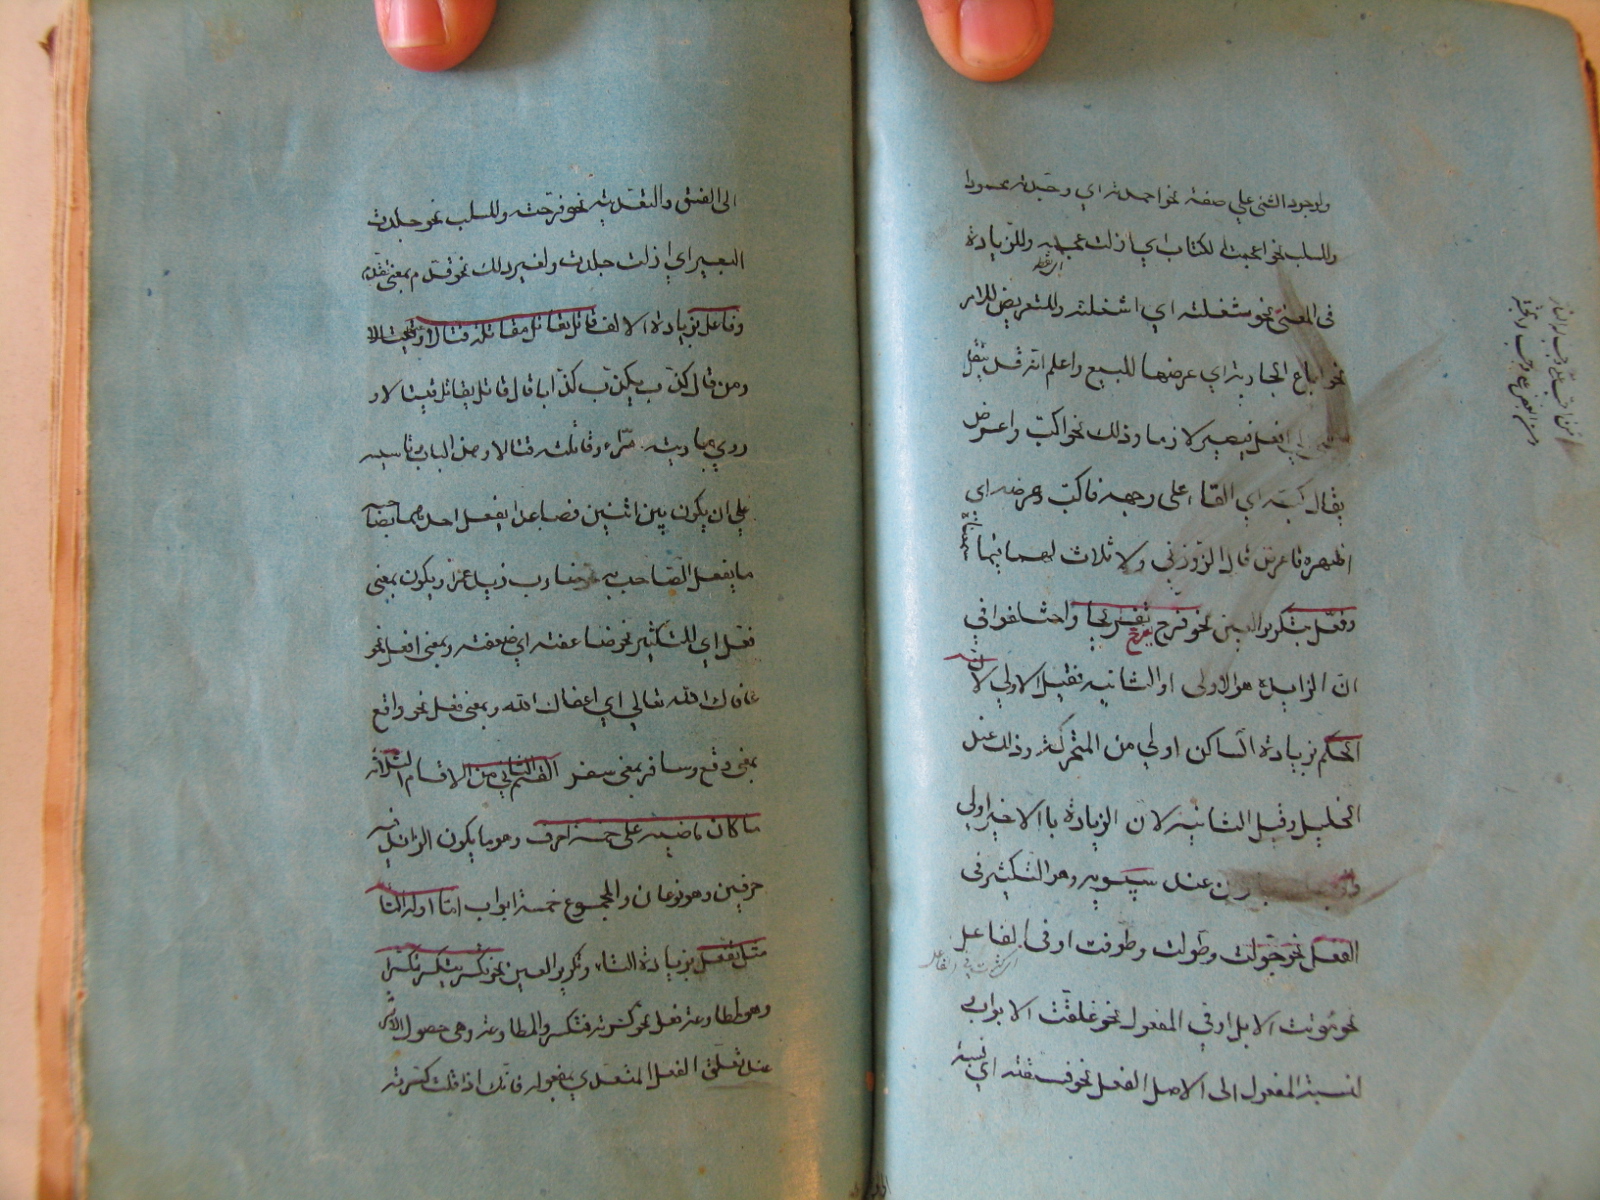 ولوجود الشئ علي صفة نحو احمدته اي وجدته محمودا
وللسلب نحو اعجمت الكتاب اي ازلت عجميه وللزيادة
فى المعنى نحو شغلته اي اشغلته وللتعريض للامر
نحو اباع الجارية اي عرضها للبيع واعلم انه قد ينقل
الي افعل فيصير لازما وذلك نحو اكب واعرض
يقال كبه اي القاه على وجهه فاكب وعرضه اي
اظهره فاعرض قال الزوزني ولا ثالث لهما فيما سمعنا
وفعّل بتكرير العين نحو فرح تفريحا واختلفوا في
ان الزايدة هو الاولى او الثانيه فقيل الاولي لان
الحكم بزيادة الساكن اولي من المتحركة وذلك عند
الخليل وقيل الثانية لان الزيادة باالاخير اولي
عند سيبويه وهو للتكثير فى
الفعل نحو جولت وطولت وطوفت او فى الفاعل
نحو موتت الابل او في المفعول نحو غلقت الابواب
لنسبة المفعول الى الاصل الفعل نحو فسقته اي نسبته
الى الفسق وللتعدية نحو فرحته وللسلب نحو جلدت
البعير اي ازلت جلده ولغير ذلك نحو قدم بمعنى تقدم
وفاعل بزيادة الالف قاتل يقاتل مقاتلة وقتالا وقيتالا
ومن قال كذب يكذب كذابا قال قاتل يقاتل قيتالا و
روي ماريته مراء وقاتلته قتالا وهذا الباب تاسيسه
علي ان يكون بين اثنين فصاعدا يفعل احدهما بصاحبه
ما يفعل الصاحب به نحو ضارب زيد عمرا ويكون بمعنى
فعل اي للتكثير نحو ضاعفته اي ضعفته وبمعنى افعل نحو
عافاك الله تعالي اي اعفاك الله وبمعنى فعل نحو واقع
بمعنى وقع وسافر بمعنى سفر القسم الثاني من الاقسام الثلاثة
ما كان ماضيه على خمسة احرف وهو ما يكون الزائد فيه
حرفين وهو نوعان والمجموع خمسة ابواب اما اوله التا
مثل تفعل بزيادة التاء وتكرير العين نحو تكسر يتكسر تكسرا
وهو لمطاوعة فعل نحو كسرته فتكسر والمطاوعة وهى حصول الاثر
عند تعلق الفعل المتعدي بمفعوله فانك اذا قلت كسرته